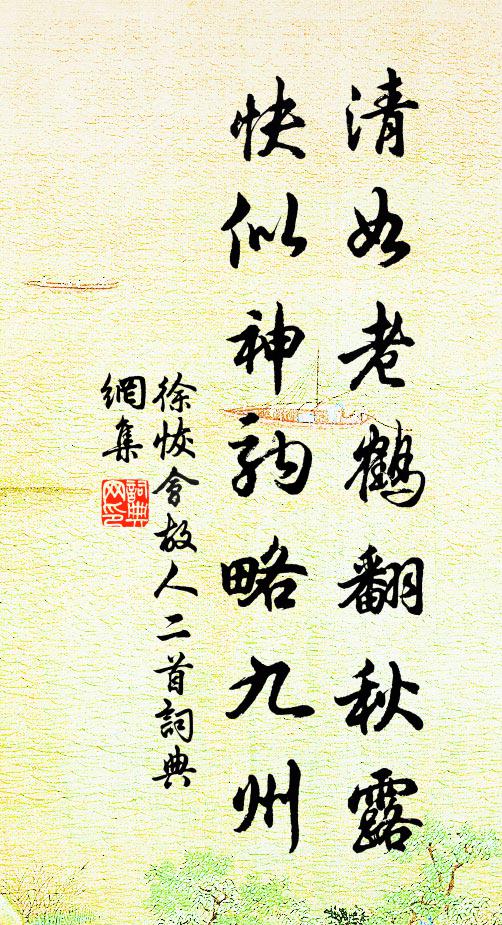 清如老鶴翻秋露
快似神駒略九州
徐恢會故人二首詞典
網集
詞典
网印